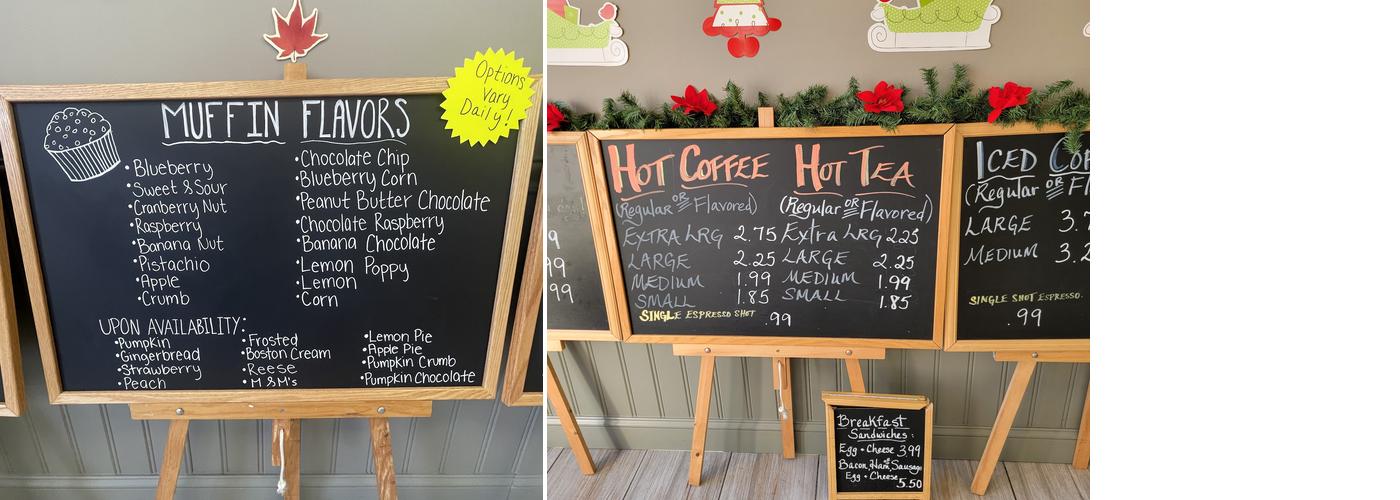 Options
Vary
Daily!
MUFFIN FLAVORS
• Blueberry
• Sweet & Sour
• Cranberry Nut
• Raspberry
• Banana Nut
• Pistachio
• Apple
• Crumb
• Chocolate Chip
• Blueberry Corn
• Peanut Butter Chocolate
• Chocolate Raspberry
• Banana Chocolate
• Lemon Poppy
• Lemon
• Corn
UPON AVAILABILITY:
• Pumpkin
• Gingerbread
• Strawberry
• Peach
• Frosted
• Boston Cream
• Reese
• M&M's
• Lemon Pie
• Apple Pie
• Pumpkin Crumb
• Pumpkin Chocolate
9
99
.99
HOT COFFEE
(Regular OR Flavored)
EXTRA LRG 2.75
LARGE 2.25
MEDIUM 1.99
SMALL 1.85
SINGLE ESPRESSO SHOT .99
HOT TEA
(Regular OR Flavored)
Extra LRG 2.25
LARGE 2.25
MEDIUM 1.99
SMALL 1.85
ICED
(Regular OR
LARGE 3.7
MEDIUM 3.2
SINGLE SHOT ESPRESSO.
.99
Breakfast
Sandwiches:
Egg + Cheese 3.99
Bacon, Ham, Sausage
Egg + Cheese
5.50